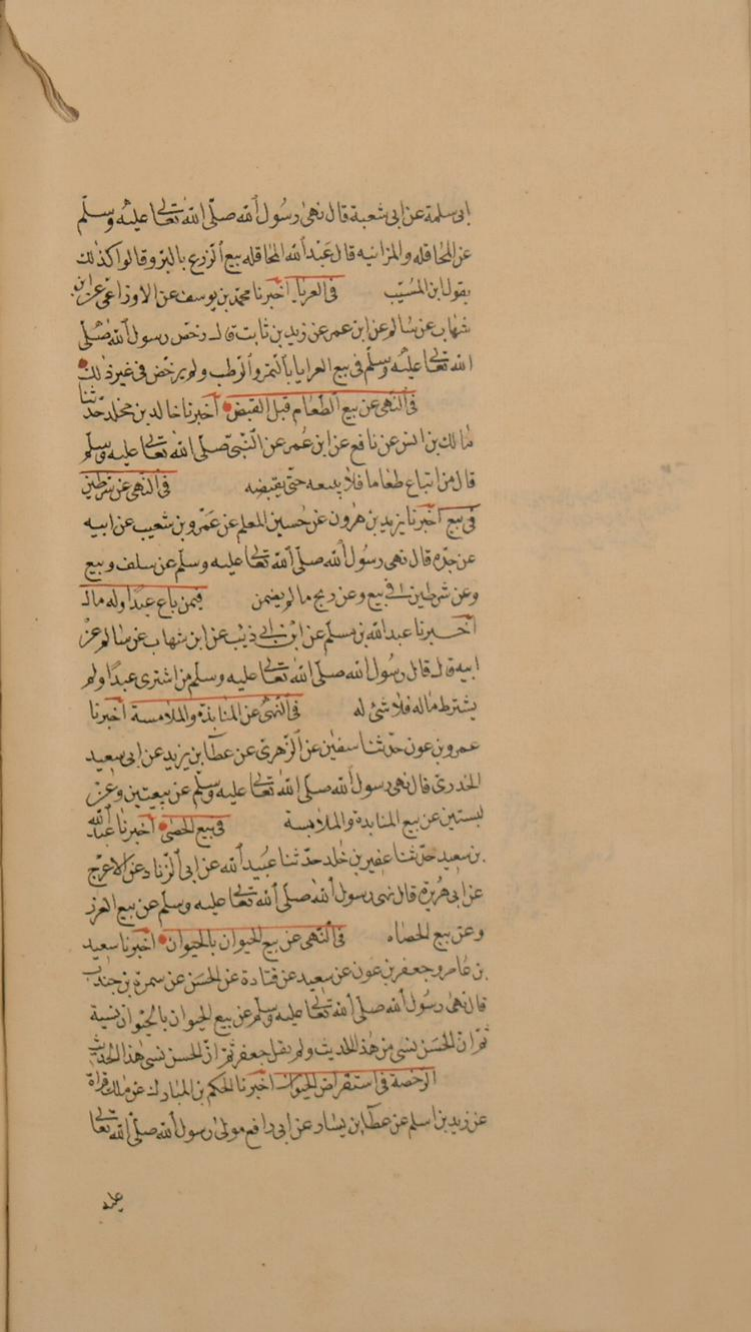 ابى سلمة عن ابى شعبة قال نهى رسول الله صلّى الله تعالى عليه وسلّم
عن المحاقله والمزانبه قال عبد الله المحاقله بيع الزرع بالبرّ وقالوا كذلك
يقول ابن المسيّب في العرايا اخبرنا محمد بن يوسف عن الاوزاعى عن ابن
شهاب عن سالم عن ابن عمر عن زيد بن ثابت قال رخّص رسول الله صلّى
الله تعالى عليه وسلّم في بيع العرايا بالتمر والرطب ولم يرخّص في غير ذلك
في النهى عن بيع الطعام قبل القبض اخبرنا خالد بن مخلد حدثنا
مالك بن انس عن نافع عن ابن عمر عن النبىّ صلّى الله تعالى عليه وسلّم
قال من ابتاع طعاما فلا يبعه حتى يقبضه في النهى عن شرطين
في بيع اخبرنا يزيد بن هرون عن حسين المعلم عن عمرو بن شعيب عن ابيه
عن جدّه قال نهى رسول الله صلّى الله تعالى عليه وسلم عن سلف وبيع
وعن شرطين في بيع وعن ربح ما لم يضمن فيمن باع عبدا وله مال
اخبرنا عبد الله بن مسلم عن ابن ابى ذيب عن ابن شهاب عن سالم عن
ابيه قال قال رسول الله صلّى الله تعالى عليه وسلّم من اشترى عبدا ولم
يشترط ماله فلا شئ له في النهى عن المنابذة والملامسة اخبرنا
عمرو بن عون حدثنا سفين عن الزهرى عن عطا بن يزيد عن ابى سعيد
الخدرىّ قال نهى رسول الله صلّى الله تعالى عليه وسلّم عن بيعتين وعن
لبستين عن بيع المنابدة والملابسة في بيع الحصى اخبرنا عبد الله
بن سعيد حدثنا عفير بن خلد حدّثنا عبيد الله عن ابى الزناد عن الاعرج
عن ابى هريرة قال نهى رسول الله صلى الله تعالى عليه وسلّم عن بيع الغرر
وعن بيع الحصاه في النهى عن بيع الحيوان بالحيوان اخبرنا سعيد
بن عامر وجعفر بن عون عن سعيد عن قتادة عن الحسن عن سمرة بن جندب
قال نهى رسول الله صلى الله تعالى عليه وسلّم عن بيع الحيوان بالحيوان نسية
ثمّ انّ الحسن نسى من هذا الحديث ولم يقل جعفر ثمّ انّ الحسن نسى هذا الحديث
الرخصة في استقراض الحيوان اخبرنا الحكم بن المبارك عن ملك قراة
عن زيد بن اسلم عن عطا بن يسار عن ابى رافع مولى رسول الله صلّى الله تعالى
عليه